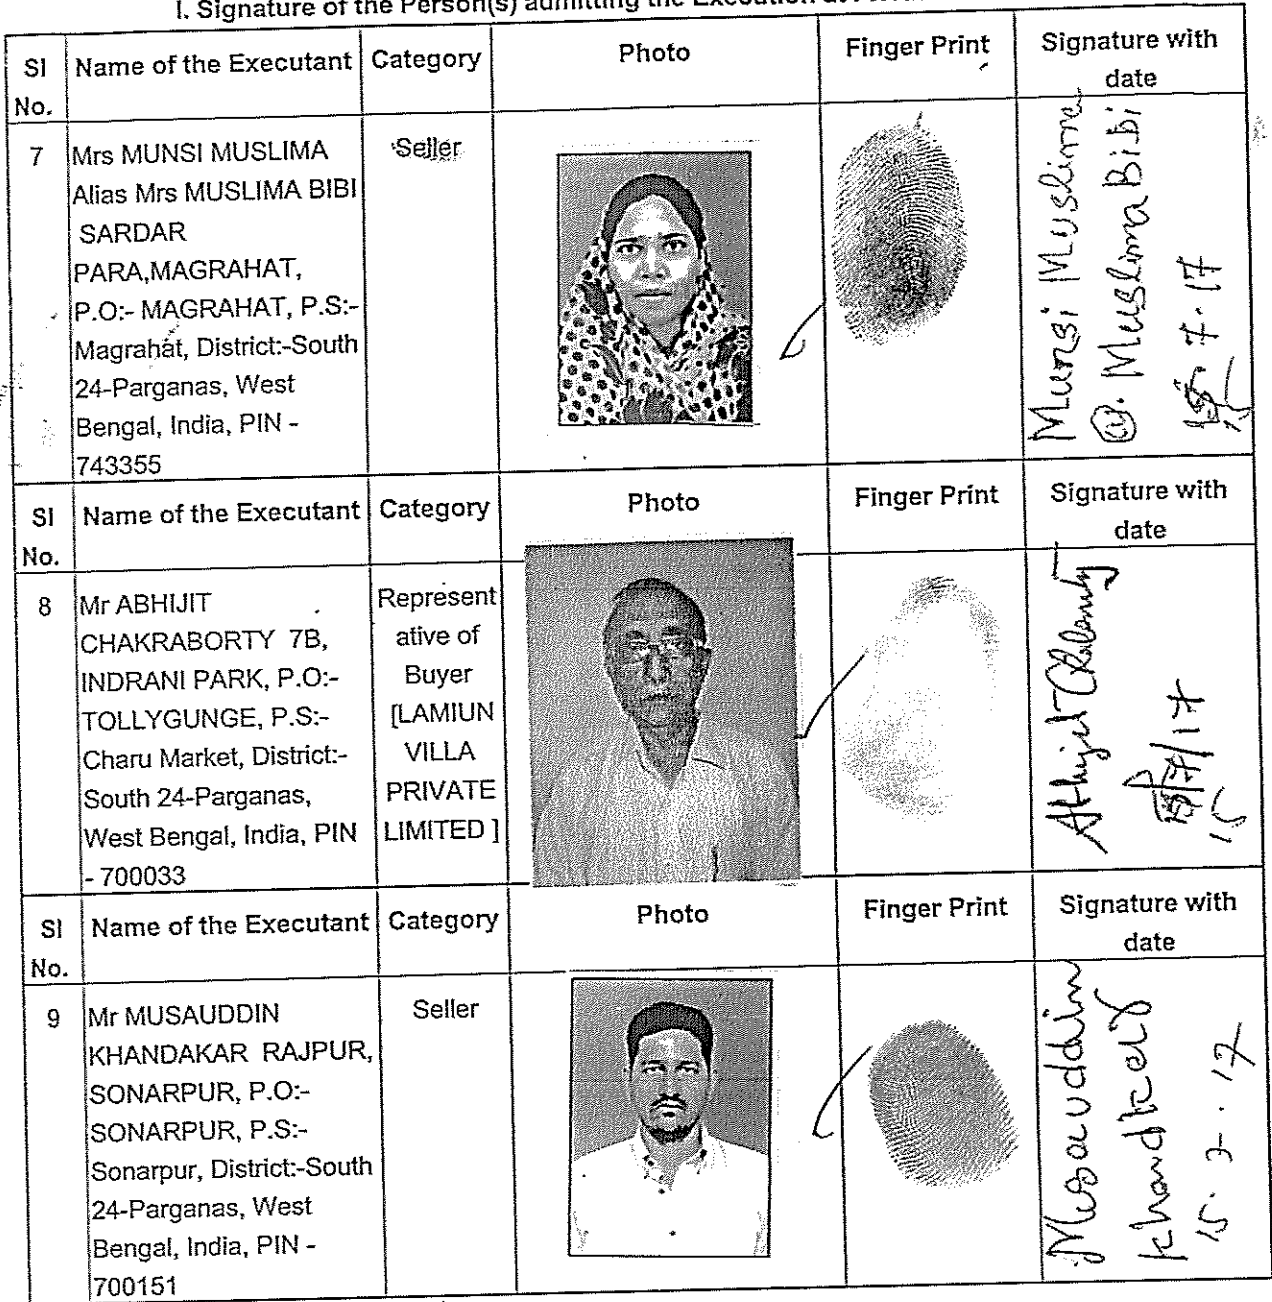 I. Signature of the Person(s) admitting the Execution at
Sl No. Name of the Executant Category Photo Finger Print Signature with date
7
Mrs MUNSI MUSLIMA
Alias Mrs MUSLIMA BIBI
SARDAR
PARA,MAGRAHAT,
P.O:- MAGRAHAT, P.S:-
Magrahat, District:-South
24-Parganas, West
Bengal, India, PIN -
743355
Seller
Munsi Muslima
@. Muslima Bibi
7.17
Sl No. Name of the Executant Category Photo Finger Print Signature with date
8
Mr ABHIJIT
CHAKRABORTY 7B,
INDRANI PARK, P.O:-
TOLLYGUNGE, P.S:-
Charu Market, District:-
South 24-Parganas,
West Bengal, India, PIN
- 700033
Represent
ative of
Buyer
[LAMIUN
VILLA
PRIVATE
LIMITED ]
Abhijit
/7/17
15
Sl No. Name of the Executant Category Photo Finger Print Signature with date
9
Mr MUSAUDDIN
KHANDAKAR RAJPUR,
SONARPUR, P.O:-
SONARPUR, P.S:-
Sonarpur, District:-South
24-Parganas, West
Bengal, India, PIN -
700151
Seller
Musauddin
15.7.17